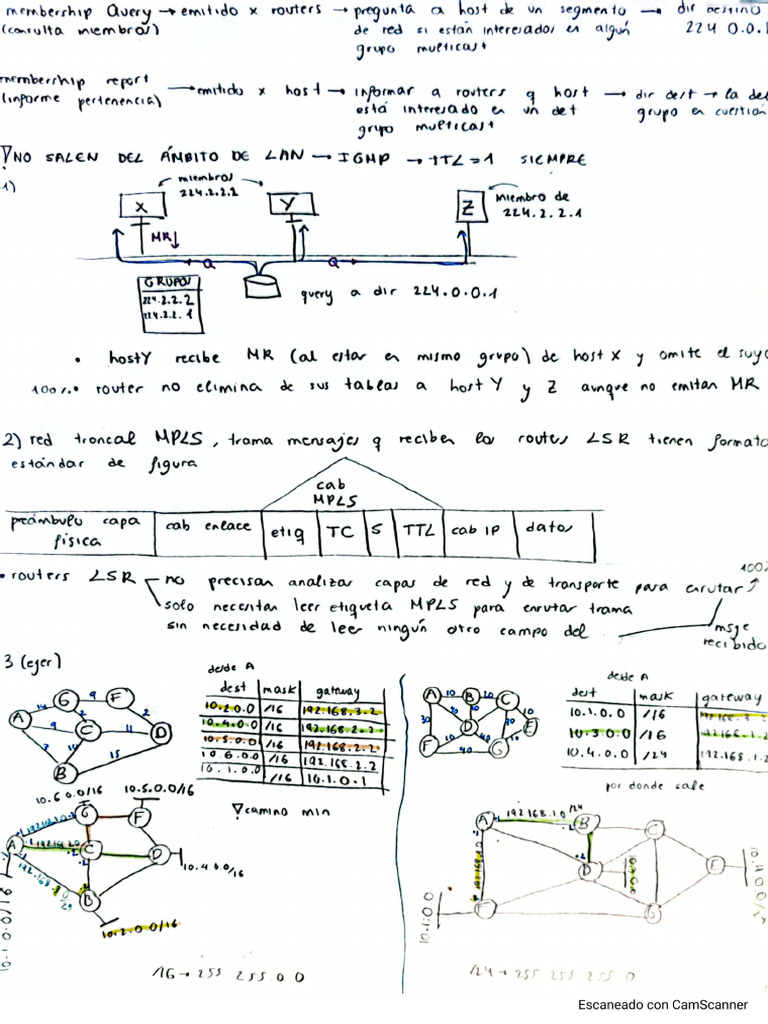 membership Query → emitido x routers → pregunta a host de un segmento → dir destino
(consulta miembros) de red si están interesados en algún 224 0.0.1
grupo multicast
membership report → emitido x host → informar a routers q host → dir dest → la del
(informe pertenencia) está interesado en un det grupo en cuestión
grupo multicast
NO SALEN DEL ÁMBITO DE LAN → IGMP → TTL=1 SIEMPRE
1)
miembros
224.2.2.2
miembro de
224.2.2.1
X
Y
Z
MR↓
Q
Q
GRUPOS
224.2.2.2
224.2.2.1
query a dir 224.0.0.1
• host Y recibe MR (al estar en mismo grupo) de host X y omite el suyo
100%• router no elimina de sus tablas a host Y y Z aunque no emitan MR
2) red troncal MPLS, trama mensajes q reciben los routes LSR tienen formato
estándar de figura
cab
MPLS
preámbulo capa física
cab enlace
etiq
TC
S
TTL
cab IP
datos
100%
• routers LSR no precisan analizar capas de red y de transporte para enrutar
solo necesitan leer etiqueta MPLS para enrutar trama
sin necesidad de leer ningún otro campo del msje
recibido
3 (ejer)
desde A
dest mask gateway
10.2.0.0 /16 192.168.3.2
10.4.0.0 /16 192.168.2.2
10.5.0.0 /16 192.168.2.2
10 6.00 /16 192.168.2.2
10.1.0.0 /16 10.1.0.1
camino min
A
G
F
C
D
B
9
2
9
11
15
10.6 0.0/16
10.5.0.0/16
G
F
A
C
D
B
10.4 0.0/16
10.2.0.0/16
10.1 0.0/16
16 → 255 255.0 0
desde A
dest mask gateway
10.1.0.0 /16
10.3.0.0 /16
10.4.0.0 /24 192.168.1.2
por donde sale
A
B
C
D
E
F
G
10
10
30
40
192.168.1.0 /24
A
B
C
D
E
F
G
10.4 0.0/24
/24 → 255 255 255 0
Escaneado con CamScanner